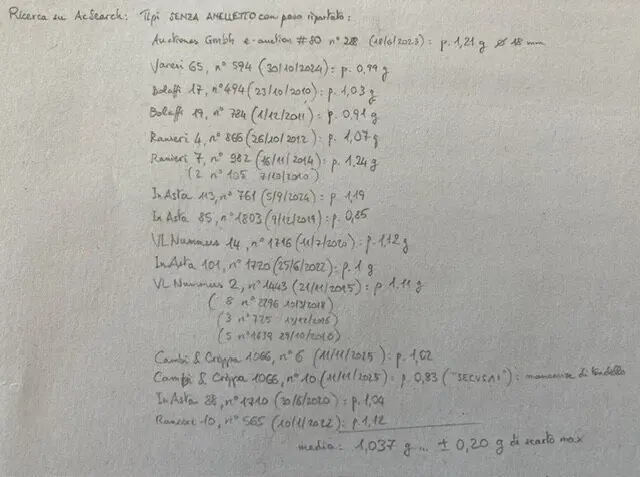 Ricerca su AcSearch: Tipi SENZA ANELLETTO con peso riportato:
Auctiones Gmbh e-auction #80 n° 28 (18/6/2023): p. 1,21 g ⌀ 18 mm
Varesi 65, n° 594 (30/10/2024): p. 0,99 g
Bolaffi 17, n° 494 (23/10/2010): p. 1,03 g
Bolaffi 19, n° 724 (1/12/2011): p. 0,91 g
Ranieri 4, n° 866 (26/10/2012): p. 1,07 g
Ranieri 7, n° 982 (16/11/2014): p. 1,24 g
(2 n° 105 7/10/2010)
InAsta 113, n° 761 (5/9/2024): p. 1,19
InAsta 85, n° 1803 (9/12/2019): p. 0,85
VL Nummus 14, n° 1716 (11/7/2020): p. 1,12 g
InAsta 101, n° 1720 (25/6/2022): p. 1 g
VL Nummus 2, n° 1443 (21/11/2015): p. 1.11 g
(8 n° 2296 10/3/2018)
(3 n° 725)
(5 n° 1639 29/10/2016)
Cambi & Crippa 1066, n° 6 (11/11/2025): p. 1,02
Cambi & Crippa 1066, n° 10 (11/11/2025): p. 0,83 ("SECUSAI"): mancanze di tondello
InAsta 88, n° 1710 (30/6/2020): p. 1,04
Ranieri 10, n° 565 (10/1/2022): p. 1,12
media: 1,037 g ... ± 0,20 g di scarto max